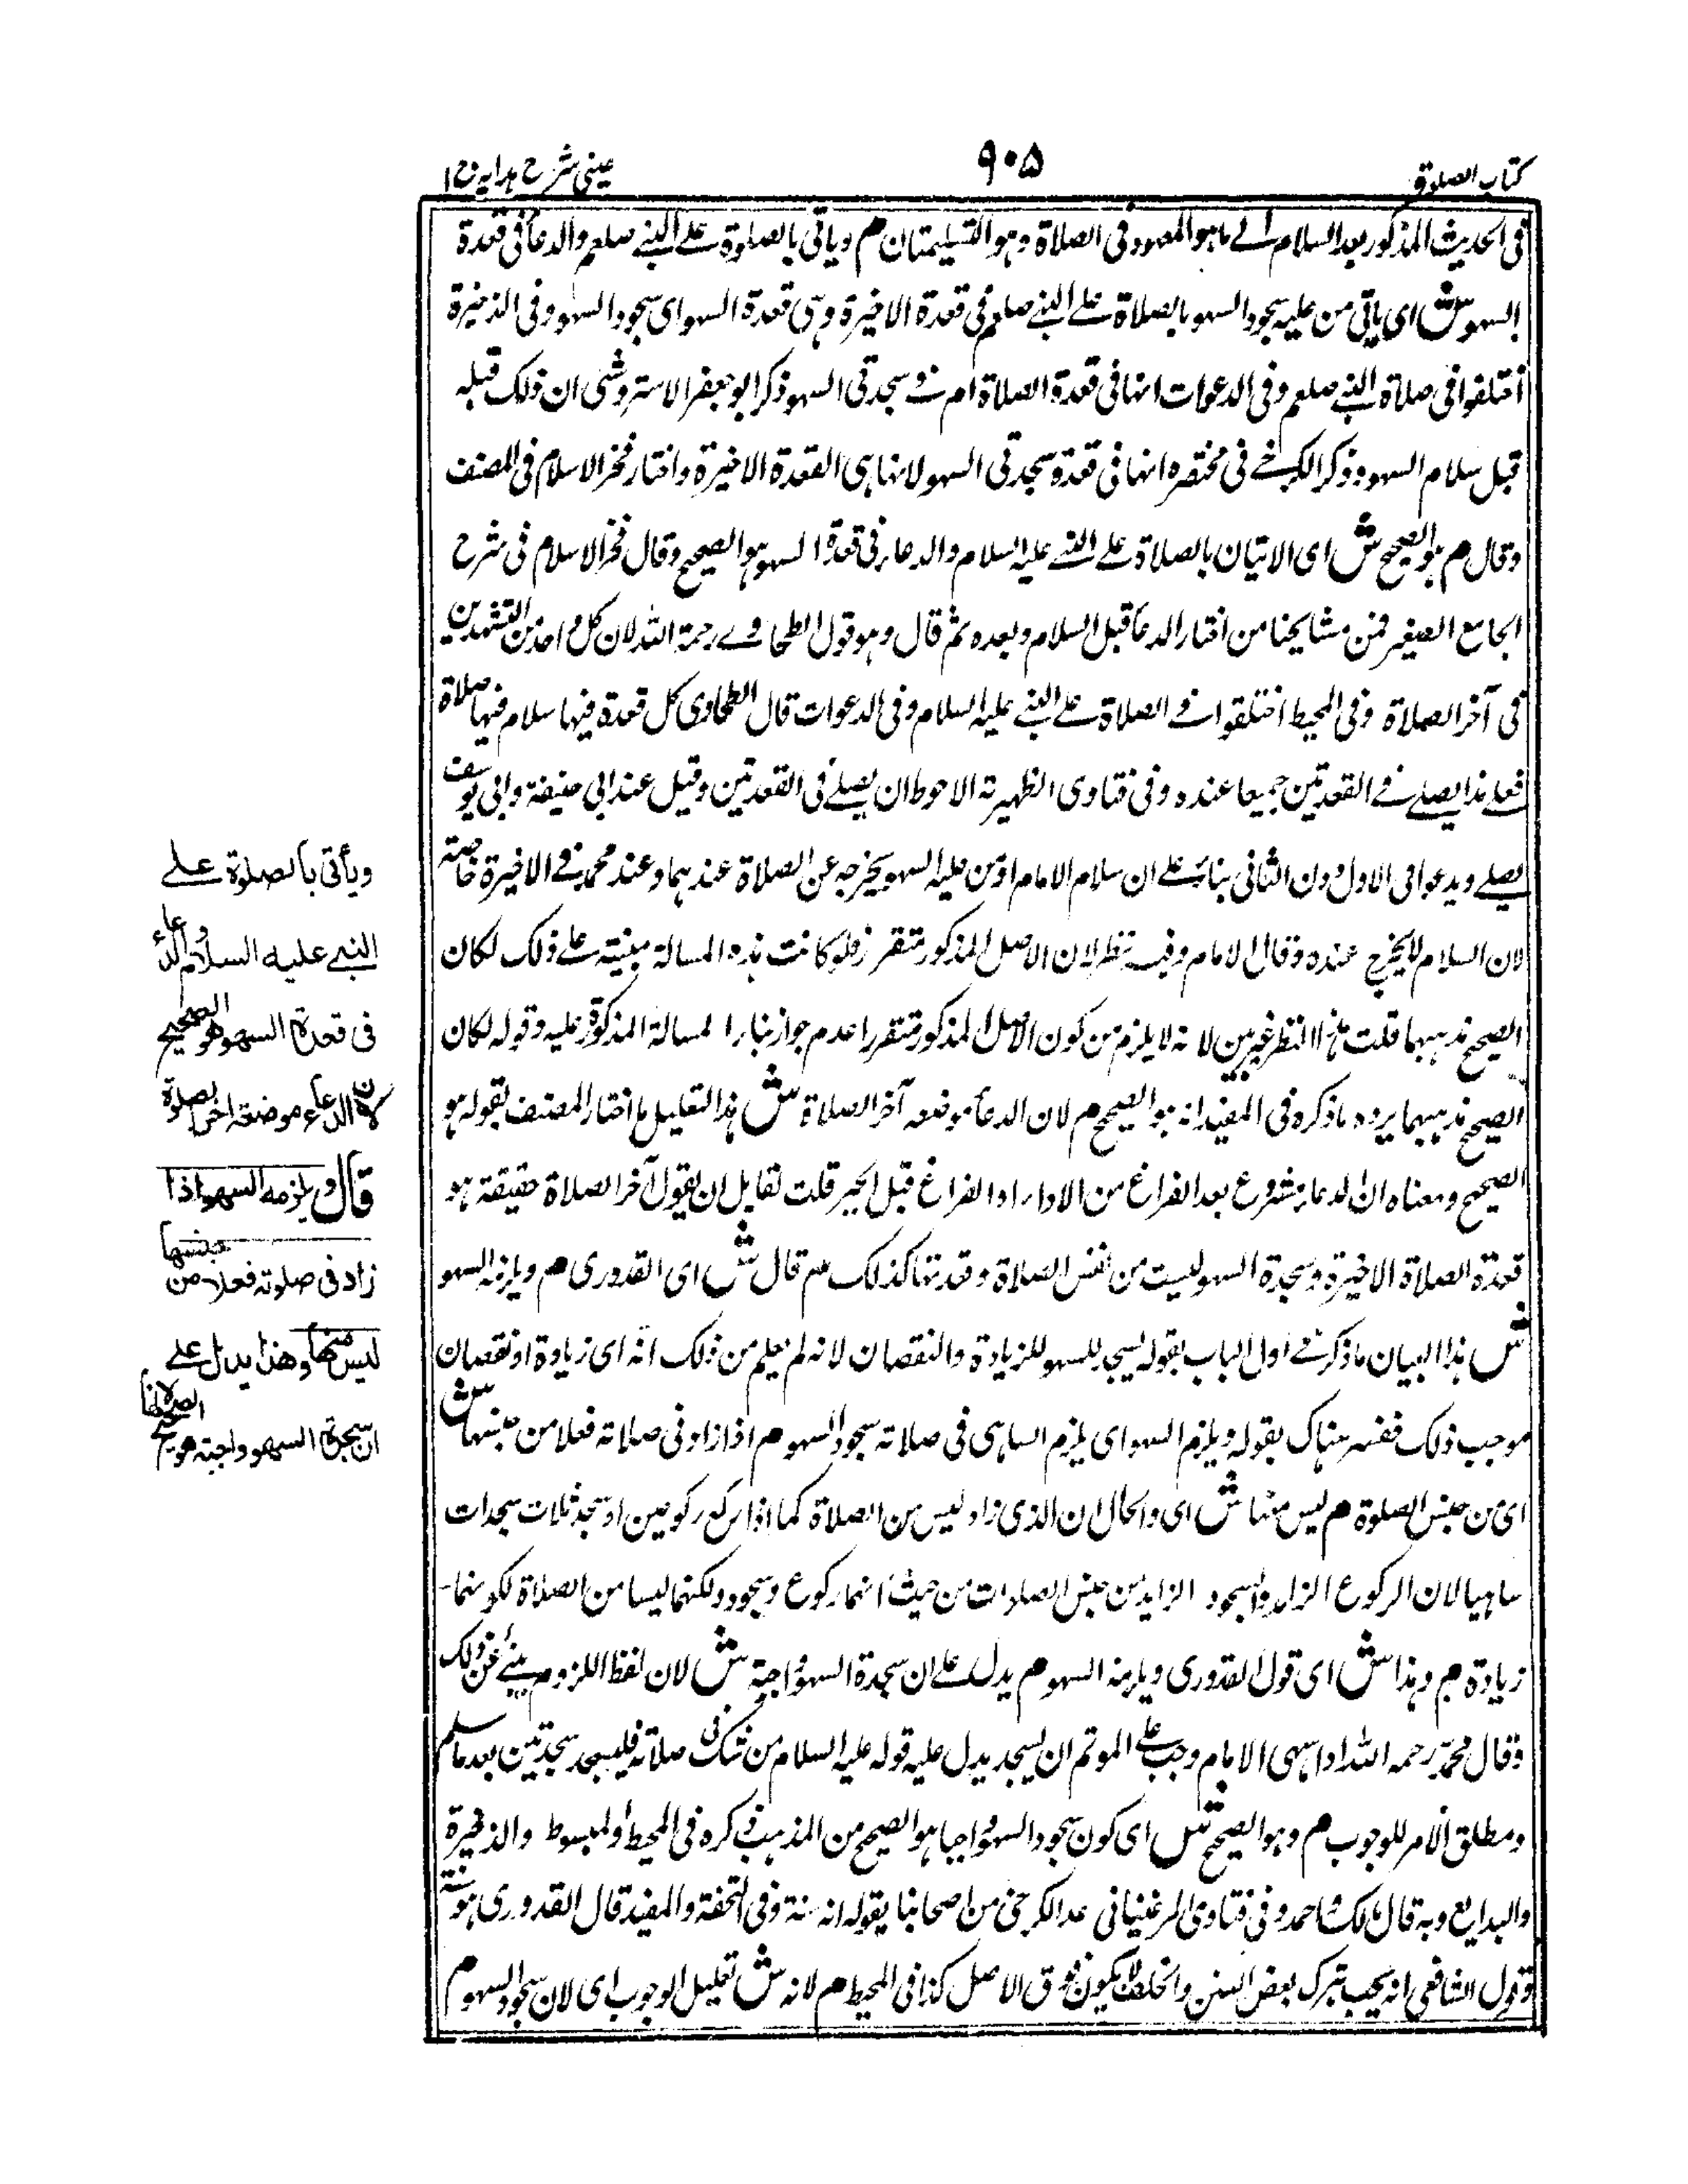 كتاب الصلوة
٩٠٥
عينى شرح هدايه ج ا
فى الحديث المذكور بعد السلام الى ما هو المعهود فى الصلاة وهو التسليمتان م وياتى بالصلوة على النبى صلعم والدعاء فى قعدة
السهو ش اى ياتى من عليه سجود السهو بالصلاة على النبى صلعم فى قعدة الاخيرة وهى قعدة السهو اى سجود السهو وفى الذخيرة
اختلفوا فى صلاة النبى صلعم وفى الدعوات انها فى قعدة الصلاة ام فى سجدتى السهو ذكر ابو جعفر الاستروشنى ان ذلك قبله
قبل سلام السهو وذكر الكرخى فى مختصره انها فى قعدة سجدتى السهو لانها هى القعدة الاخيرة واختار فخر الاسلام فى المصنف
وقال م هو الصحيح ش اى الاتيان بالصلاة على النبى عليه السلام والدعاء فى قعدة السهو هو الصحيح وقال فخر الاسلام فى شرح
الجامع الصغير فمن مشايخنا من اختار الدعا قبل السلام وبعده ثم قال وهو قول الطحاوى رحمة الله لان كل واحد من التشهدين
فى آخر الصلاة وفى المحيط اختلفوا فى الصلاة على النبى عليه السلام وفى الدعوات قال الطحاوى كل قعدة فيها سلام فيها صلاة
فعلى هذا يصلى فى القعدتين جميعا عنده وفى فتاوى الظهيرته الاحوط ان يصلى فى القعدتين وقيل عند ابى حنيفة وابى يوسف
يصلى ويدعو فى الاول دون الثانى بناء على ان سلام الامام او من عليه السهو يخرجه عن الصلاة عندهما وعند محمد فى الاخيرة خاصته
لان السلام لا يخرج عنده وقال الامام وفيه نظر لان الاصل المذكور متقرر فلو كانت هذه المسالة مبنية على ذلك لكان
الصحيح مذهبهما قلت هذا النظر غير مبين لانه لا يلزم من كون الاصل المذكور متقررا عدم جواز بناء المسالة المذكورة عليه وقوله لكان
الصحيح مذهبهما يرده ماذكره فى المفيد انه هو الصحيح م لان الدعا موضعه آخر الصلاة ش هذا التعليل ما اختار المصنف بقوله هو
الصحيح ومعناه ان الدعاء مشروع بعد الفراغ من الاداء و الفراغ قبل الجبر قلت لقايل ان يقول آخر الصلاة حقيقة هو
قعدة الصلاة الاخيرة وسجدة السهو ليست من نفس الصلاة وقعدتها كذلك م قال ش اى القدورى م ويلزمه السهو
ش هذا البيان ما ذكر فى اول الباب بقوله يسجد للسهو للزيادة والنقصان لانه لم يعلم من ذلك انه اى زيادة او نقصان
موجب ذلك ففسر هناك بقوله ويلزم السهو اى يلزم الساهى فى صلاته سجود السهو م اذا زاد فى صلاته فعلا من جنسها ش
اى من جنس الصلوة م ليس منها ش اى والحال ان الذى زاد ليس من الصلاة كما اذا ركع ركوعين او سجد ثلاث سجدات
ساهيا لان الركوع الزايد والسجود الزايد من جنس الصلوات من حيث انهما ركوع وسجود ولكنهما ليسا من الصلاة لكونهما
زيادة م وهذا ش اى قول القدورى ويلزمه السهو م يدل على ان سجدة السهو واجبة ش لان لفظ اللزوم ينبئ عن ذلك
وقال محمد رحمه الله اذا سهى الامام وجب على الموتم ان يسجد يدل عليه قوله عليه السلام من شك فى صلاته فليسجد سجدتين بعد ما سلم
ومطلق الامر للوجوب م وهو الصحيح ش اى كون سجود السهو واجبا هو الصحيح من المذهب ذكره فى المحيط والمبسوط والذخيرة
والبدايع وبه قال مالك واحمد وفى فتاوى المرغينانى عد الكرخى من اصحابنا يقوله انه سنة وفى التحفة والمفيد قال القدورى هو سنة
وقول الشافعى انه يجب بترك بعض السنن والخلف لا يكون فوق الاصل كذا فى المحيط م لانه ش تعليل الوجوب اى لان سجود السهو م
ويأتى بالصلوة على
النبى عليه السلام والدعاء
فى قعدة السهو هو الصحيح
لان الدعاء موضعه اخر الصلوة
قال ويلزمه السهو اذا
زاد فى صلوته فعلا من جنسها
ليس منها وهذا يدل على
ان سجدة السهو واجبة هو الصحيح